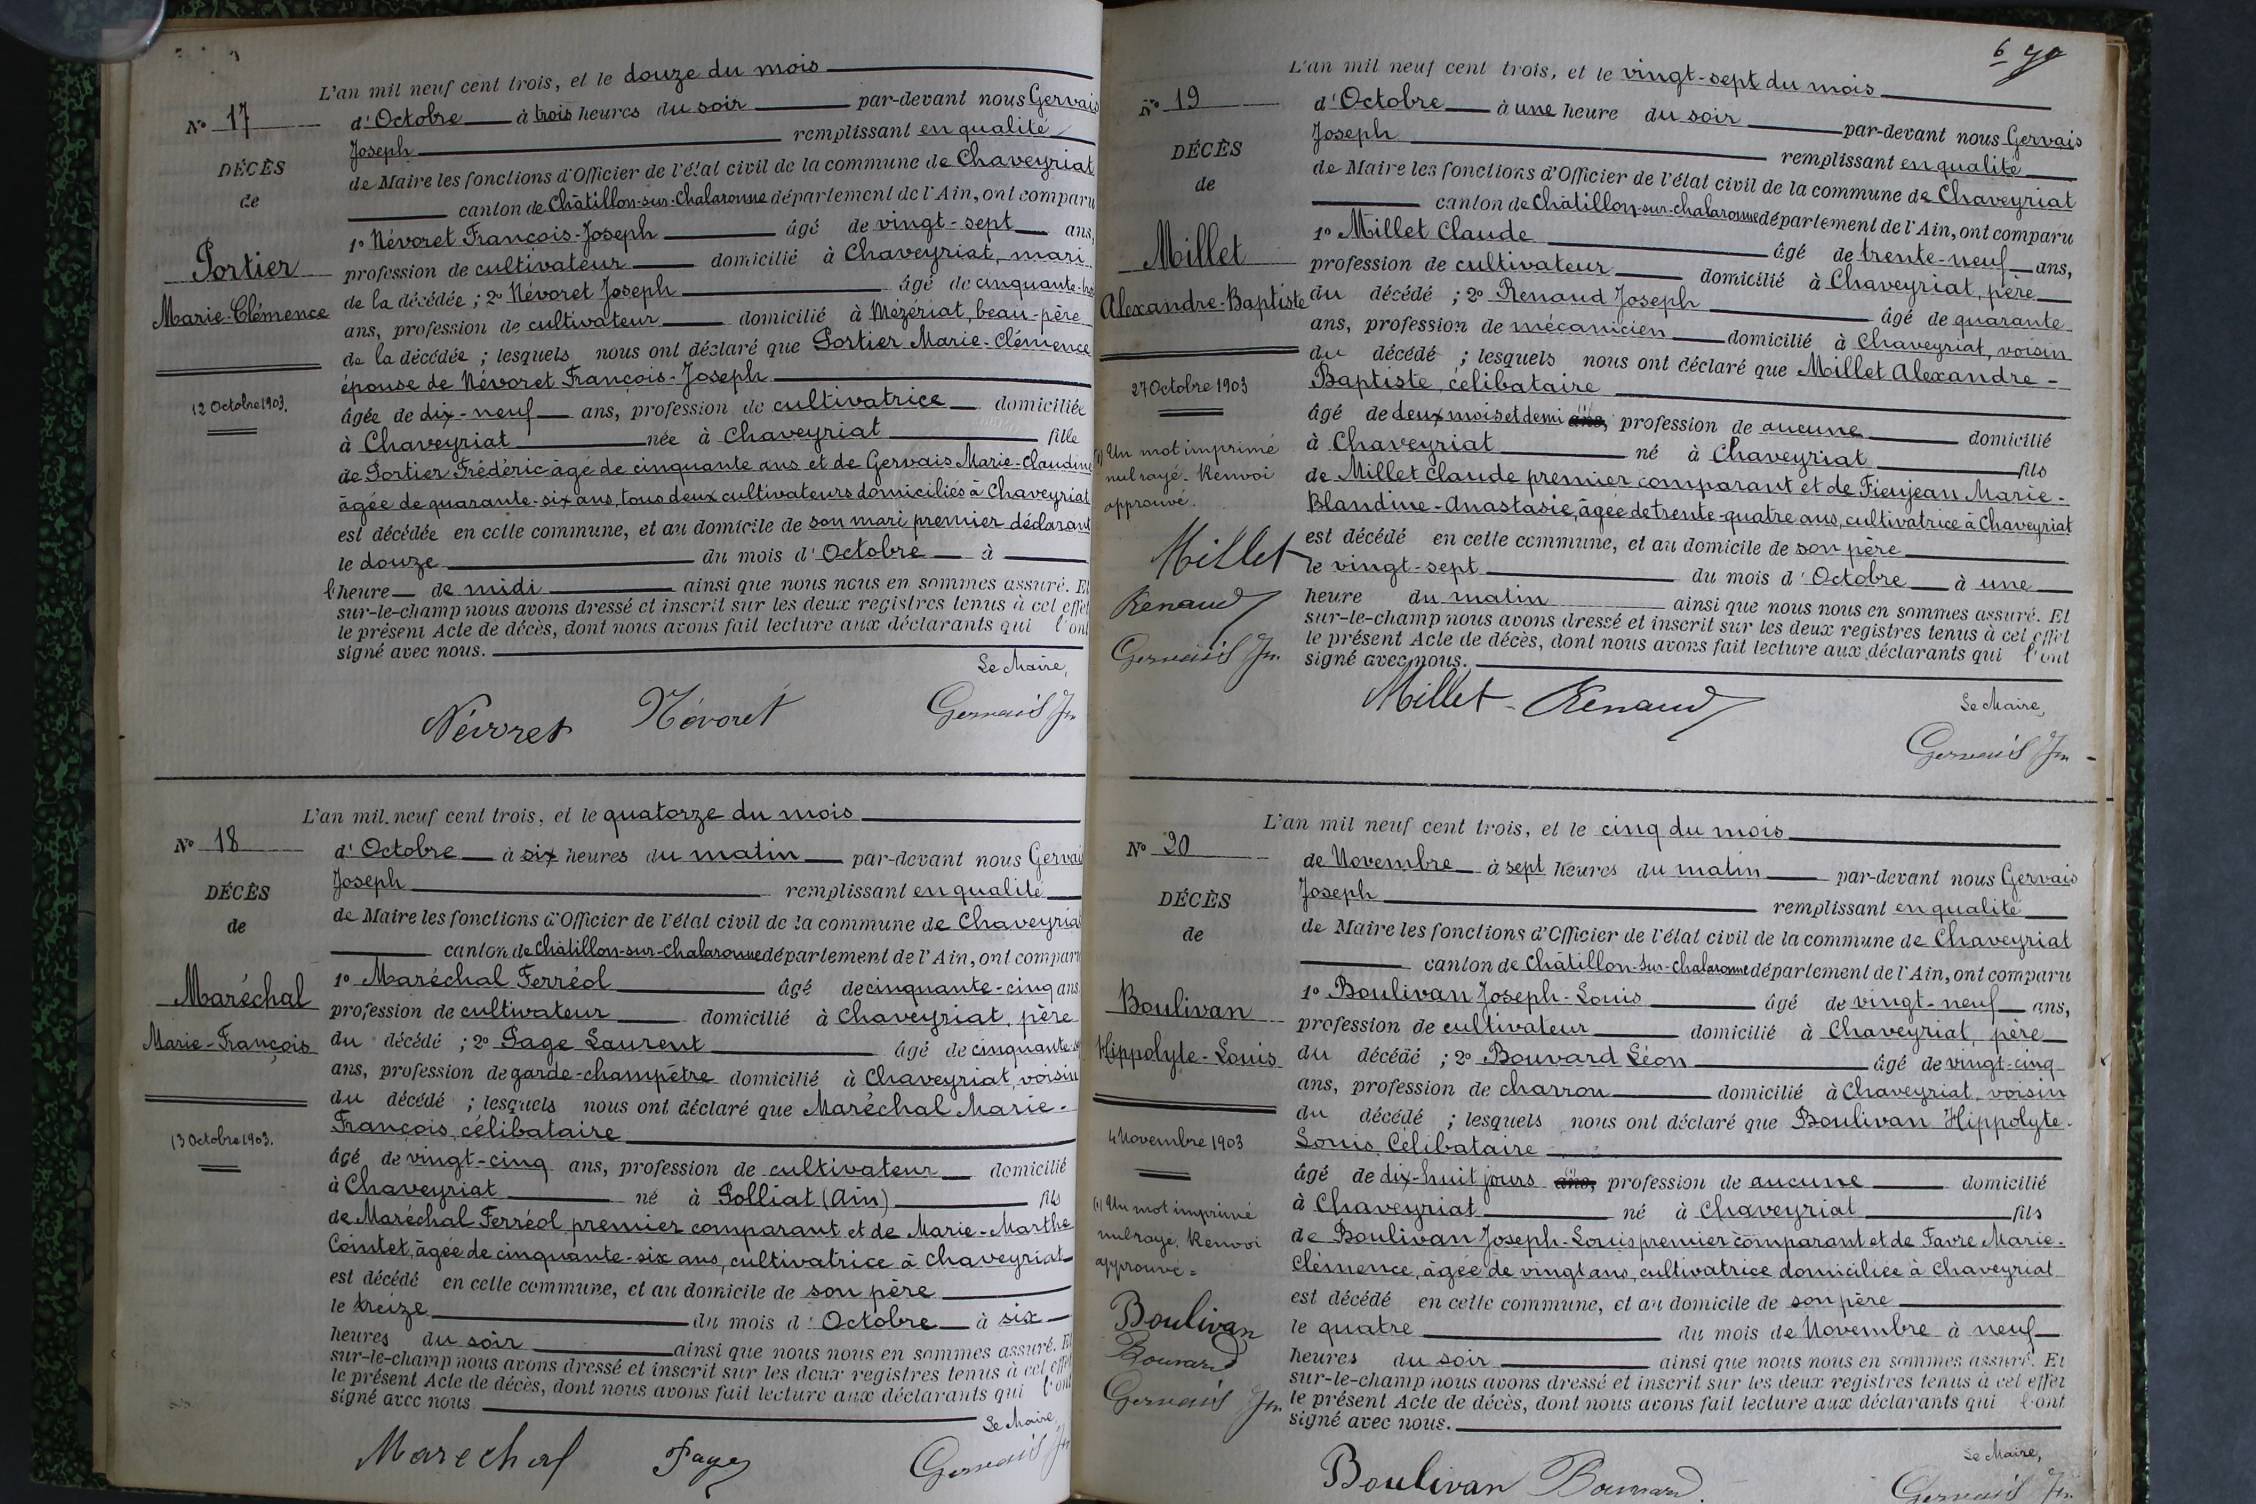 L'an mil neuf cent trois, et le douze du mois
N° 17
d'Octobre à trois heures du soir par-devant nous Gervais
Joseph remplissant en qualité
DÉCÈS
de Maire les fonctions d'Officier de l'état civil de la commune de Chaveyriat
de
canton de Châtillon-sur-Chalaronne département de l'Ain, ont comparu
1° Névoret François-Joseph âgé de vingt-sept ans,
Portier
profession de cultivateur domicilié à Chaveyriat, mari
de la décédée ; 2° Névoret Joseph âgé de cinquante-
Marie-Clémence
ans, profession de cultivateur domicilié à Mézériat, beau-père
de la décédée ; lesquels nous ont déclaré que Portier Marie-Clémence
épouse de Névoret François-Joseph
12 Octobre 1903.
âgée de dix-neuf ans, profession de cultivatrice domiciliée
à Chaveyriat née à Chaveyriat fille
de Portier Frédéric âgé de cinquante ans et de Gervais Marie-Claudine
âgée de quarante-six ans, tous deux cultivateurs domiciliés à Chaveyriat
est décédée en cette commune, et au domicile de son mari premier déclarant
le douze du mois d'Octobre à
l'heure de midi ainsi que nous nous en sommes assuré. Et
sur-le-champ nous avons dressé et inscrit sur les deux registres tenus à cet effet
le présent Acte de décès, dont nous avons fait lecture aux déclarants qui l'ont
signé avec nous.
Le Maire,
Névoret Névoret Gervais Jh
L'an mil neuf cent trois, et le quatorze du mois
N° 18
d'Octobre à six heures du matin par-devant nous Gervai
Joseph remplissant en qualité
DÉCÈS
de Maire les fonctions d'Officier de l'état civil de la commune de Chaveyria
de
canton de Châtillon-sur-Chalaronne département de l'Ain, ont comparu
1° Maréchal Ferréol âgé de cinquante-cinq ans
Maréchal
profession de cultivateur domicilié à Chaveyriat, père
Marie-François
du décédé ; 2° Page Laurent âgé de cinquante-
ans, profession de garde-champêtre domicilié à Chaveyriat, voisin
du décédé ; lesquels nous ont déclaré que Maréchal Marie-
François, célibataire
13 Octobre 1903.
âgé de vingt-cinq ans, profession de cultivateur domicilié
à Chaveyriat né à Polliat (Ain) fils
de Maréchal Ferréol premier comparant et de Marie-Marthe
Cointet, âgée de cinquante-six ans, cultivatrice à Chaveyriat
est décédé en cette commune, et au domicile de son père
le treize du mois d'Octobre à six
heures du soir ainsi que nous nous en sommes assuré. Et
sur-le-champ nous avons dressé et inscrit sur les deux registres tenus à cet effet
le présent Acte de décès, dont nous avons fait lecture aux déclarants qui l'ont
signé avec nous
Le Maire,
Marechal Page Gervais Jh
6 70
L'an mil neuf cent trois, et le vingt-sept du mois
N° 19
d'Octobre à une heure du soir par-devant nous Gervais
Joseph remplissant en qualité
DÉCÈS
de Maire les fonctions d'Officier de l'état civil de la commune de Chaveyriat
de
canton de Châtillon-sur-Chalaronne département de l'Ain, ont comparu
1° Millet Claude âgé de trente-neuf ans,
Millet
profession de cultivateur domicilié à Chaveyriat, père
Alexandre-Baptiste
du décédé ; 2° Renaud Joseph âgé de quarante
ans, profession de mécanicien domicilié à Chaveyriat, voisin
du décédé ; lesquels nous ont déclaré que Millet Alexandre-
Baptiste, célibataire
27 Octobre 1903
âgé de deux mois et demi (1) ans, profession de aucune domicilié
à Chaveyriat né à Chaveyriat fils
(1) Un mot imprimé
nul rayé. Renvoi
approuvé.
de Millet Claude premier comparant et de Fieujean Marie-
Blandine-Anastasie, âgée de trente-quatre ans, cultivatrice à Chaveyriat
est décédé en cette commune, et au domicile de son père
Millet
le vingt-sept du mois d'Octobre à une
Renaud
heure du matin ainsi que nous nous en sommes assuré. Et
sur-le-champ nous avons dressé et inscrit sur les deux registres tenus à cet effet
le présent Acte de décès, dont nous avons fait lecture aux déclarants qui l'ont
Gervais Jh
signé avec nous.
Le Maire,
Millet Renaud Gervais Jh
L'an mil neuf cent trois, et le cinq du mois
N° 20
de Novembre à sept heures du matin par-devant nous Gervais
Joseph remplissant en qualité
DÉCÈS
de Maire les fonctions d'Officier de l'état civil de la commune de Chaveyriat
de
canton de Châtillon-sur-Chalaronne département de l'Ain, ont comparu
1° Boulivan Joseph-Louis âgé de vingt-neuf ans,
Boulivan
profession de cultivateur domicilié à Chaveyriat, père
Hippolyte-Louis
du décédé ; 2° Bouvard Léon âgé de vingt-cinq
ans, profession de charron domicilié à Chaveyriat, voisin
du décédé ; lesquels nous ont déclaré que Boulivan Hippolyte-
4 Novembre 1903
Louis, Célibataire
âgé de dix-huit jours ans, profession de aucune domicilié
à Chaveyriat né à Chaveyriat fils
(1) Un mot imprimé
nul rayé. Renvoi
approuvé =
de Boulivan Joseph-Louis premier comparant et de Favre Marie-
Clémence, âgée de vingt ans, cultivatrice domiciliée à Chaveyriat
est décédé en cette commune, et au domicile de son père
Boulivan
le quatre du mois de Novembre à neuf
Bouvard
heures du soir ainsi que nous nous en sommes assuré. Et
sur-le-champ nous avons dressé et inscrit sur les deux registres tenus à cet effet
Gervais Jh
le présent Acte de décès, dont nous avons fait lecture aux déclarants qui l'ont
signé avec nous.
Le Maire,
Boulivan Bouvard Gervais Jh